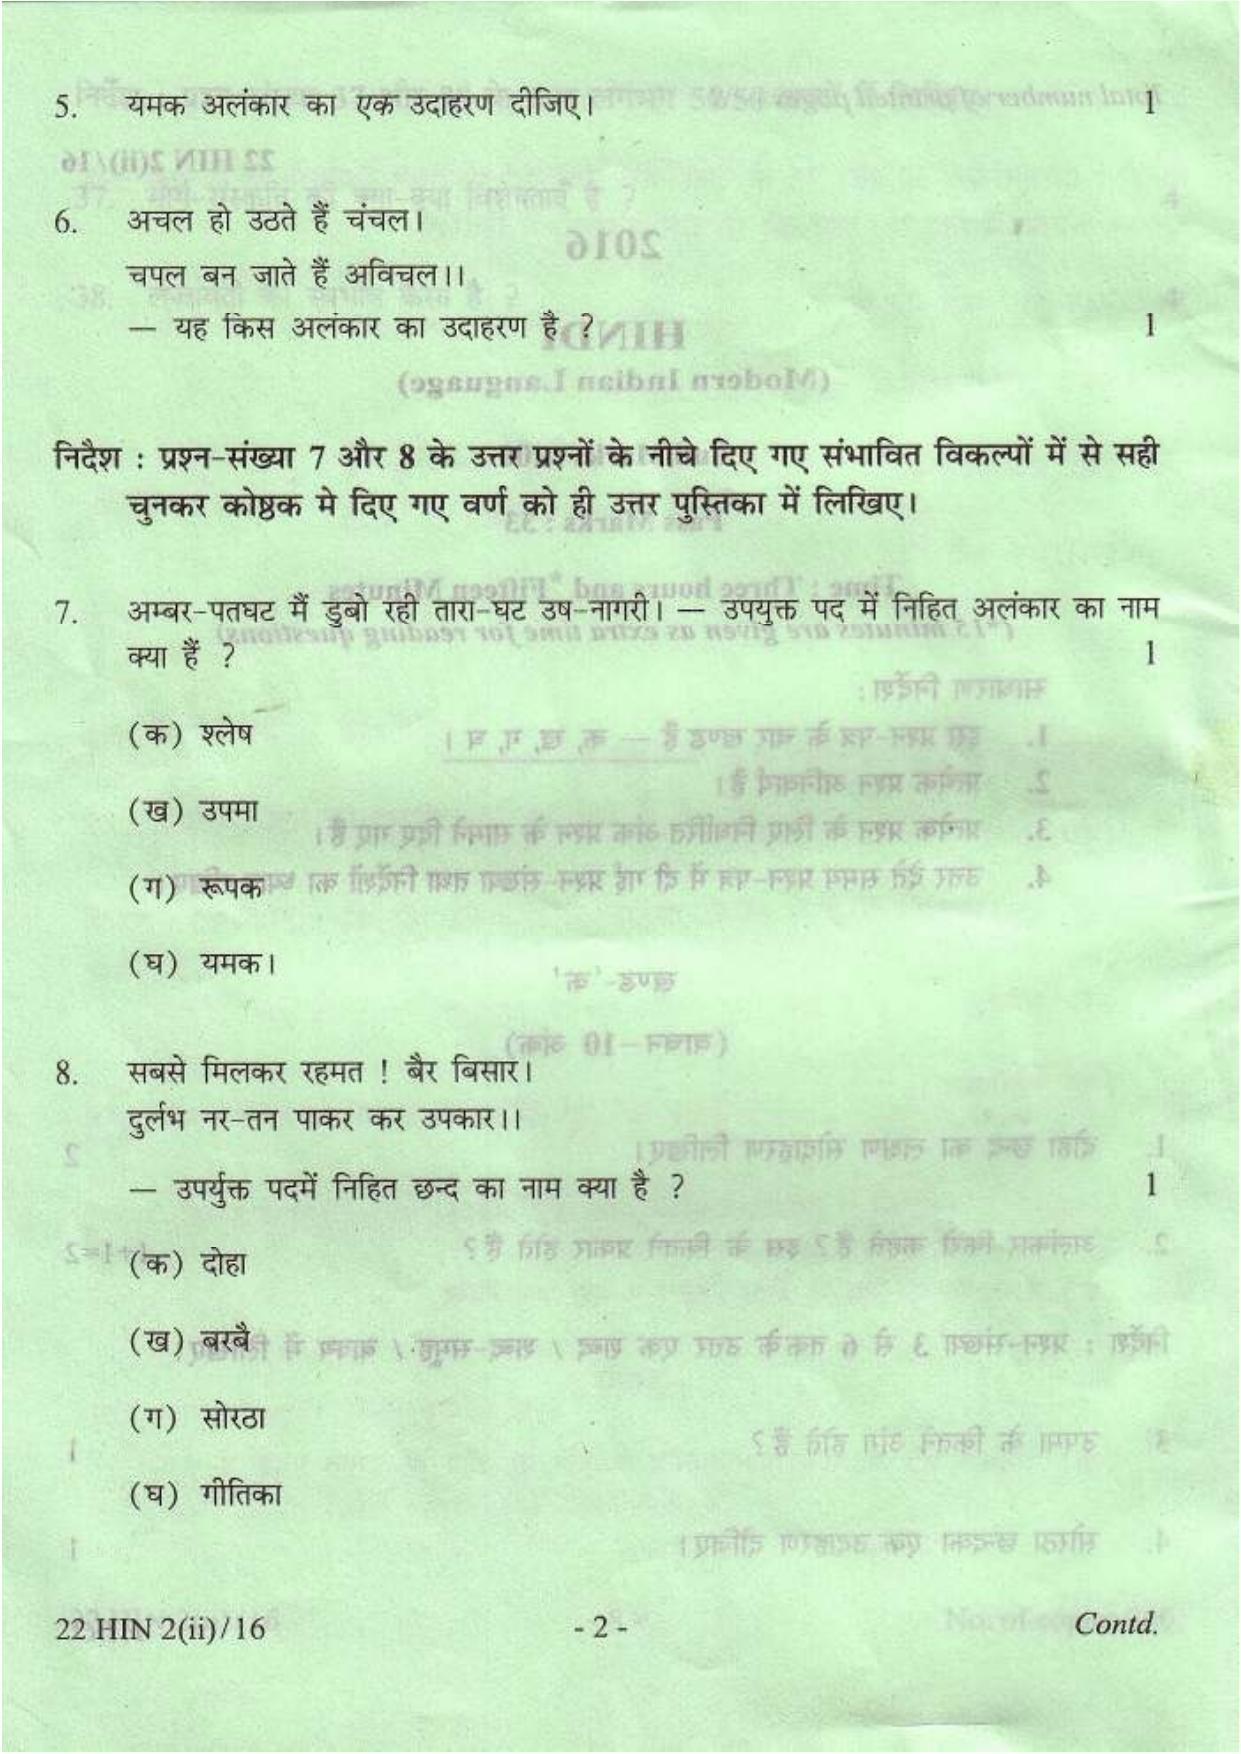 5. यमक अलंकार का एक उदाहरण दीजिए। 1
6. अचल हो उठते हैं चंचल।
चपल बन जाते हैं अविचल।।
— यह किस अलंकार का उदाहरण है ? 1
निदैश : प्रश्न-संख्या 7 और 8 के उत्तर प्रश्नों के नीचे दिए गए संभावित विकल्पों में से सही
चुनकर कोष्ठक मे दिए गए वर्ण को ही उत्तर पुस्तिका में लिखिए।
7. अम्बर-पतघट मैं डुबो रही तारा-घट उष-नागरी। — उपयुक्त पद में निहित अलंकार का नाम
क्या हैं ? 1
(क) श्लेष
(ख) उपमा
(ग) रूपक
(घ) यमक।
8. सबसे मिलकर रहमत ! बैर बिसार।
दुर्लभ नर-तन पाकर कर उपकार।।
— उपर्युक्त पदमें निहित छन्द का नाम क्या है ? 1
(क) दोहा
(ख) बरबै
(ग) सोरठा
(घ) गीतिका
22 HIN 2(ii)/16 - 2 - Contd.